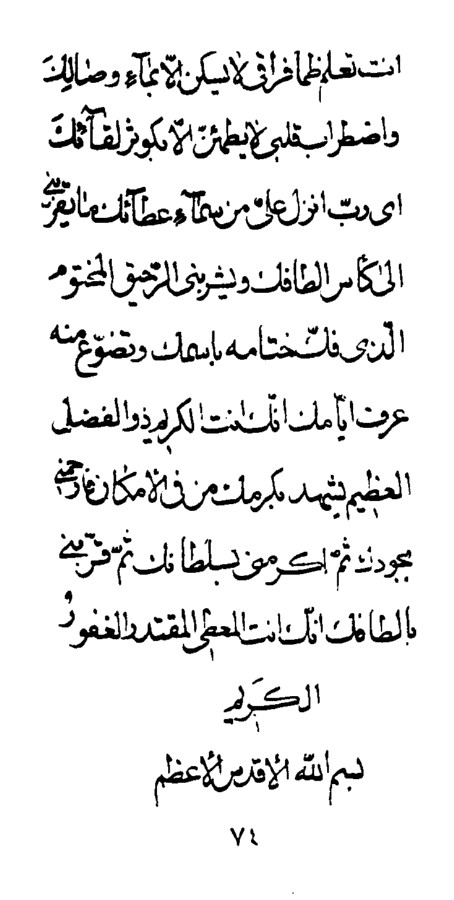 انت تعلم ظمأ فراقی لا یسکن الّا بمآء وصالک
واضطراب قلبی لا یطمئنّ الّا بکوثر لقآئک
ای ربّ انزل علیّ من سمآء عطآئک ما یقرّبنی
الی کأس الطافک ویشربنی الرّحیق المختوم
الّذی فکّ ختامه باسمک وتضوّع منه
عرف ایّامک انّک انت الکریم ذو الفضل
العظیم یشهد بکرمک من فی الامکان فارحمنی
بجودک ثمّ اکرمنی بسلطانک ثمّ قرّبنی
بالطافک انّک انت المعطی المقتدر الغفور
الکریم
بسم الله الاقدس الاعظم
٧٤